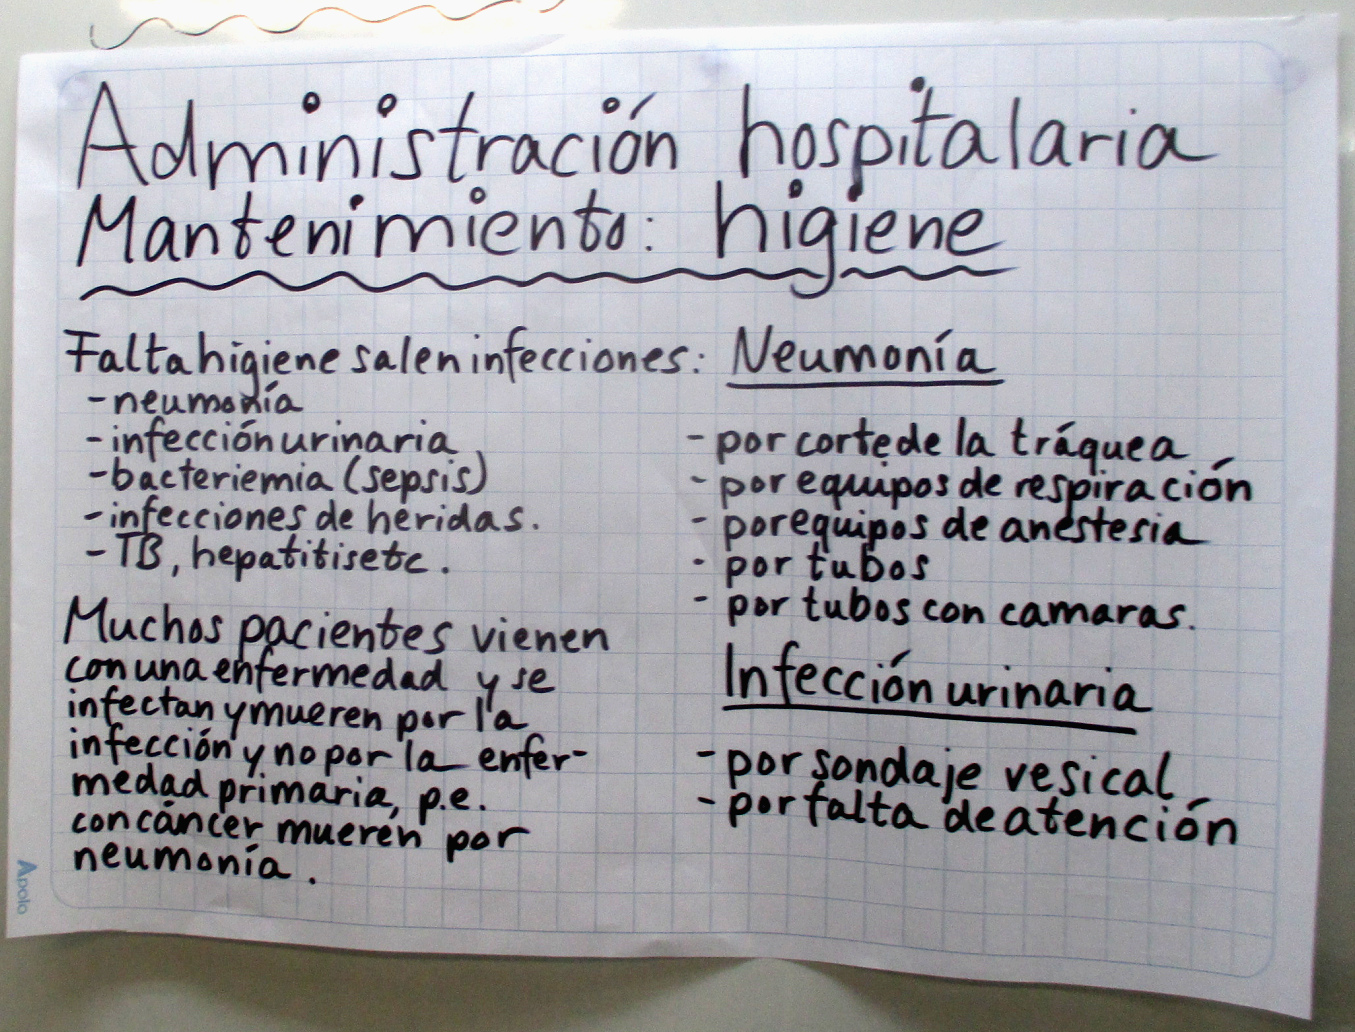 Administración hospitalaria
Mantenimiento: higiene
Falta higiene salen infecciones:
- neumonía
- infección urinaria
- bacteriemia (sepsis)
- infecciones de heridas.
- TB, hepatitis etc.
Muchos pacientes vienen
con una enfermedad y se
infectan y mueren por la
infección y no por la enfer-
medad primaria, p.e.
con cáncer mueren por
neumonía.
Neumonía
- por corte de la tráquea
- por equipos de respiración
- por equipos de anestesia
- por tubos
- por tubos con camaras.
Infección urinaria
- por sondaje vesical
- por falta de atención
Apolo